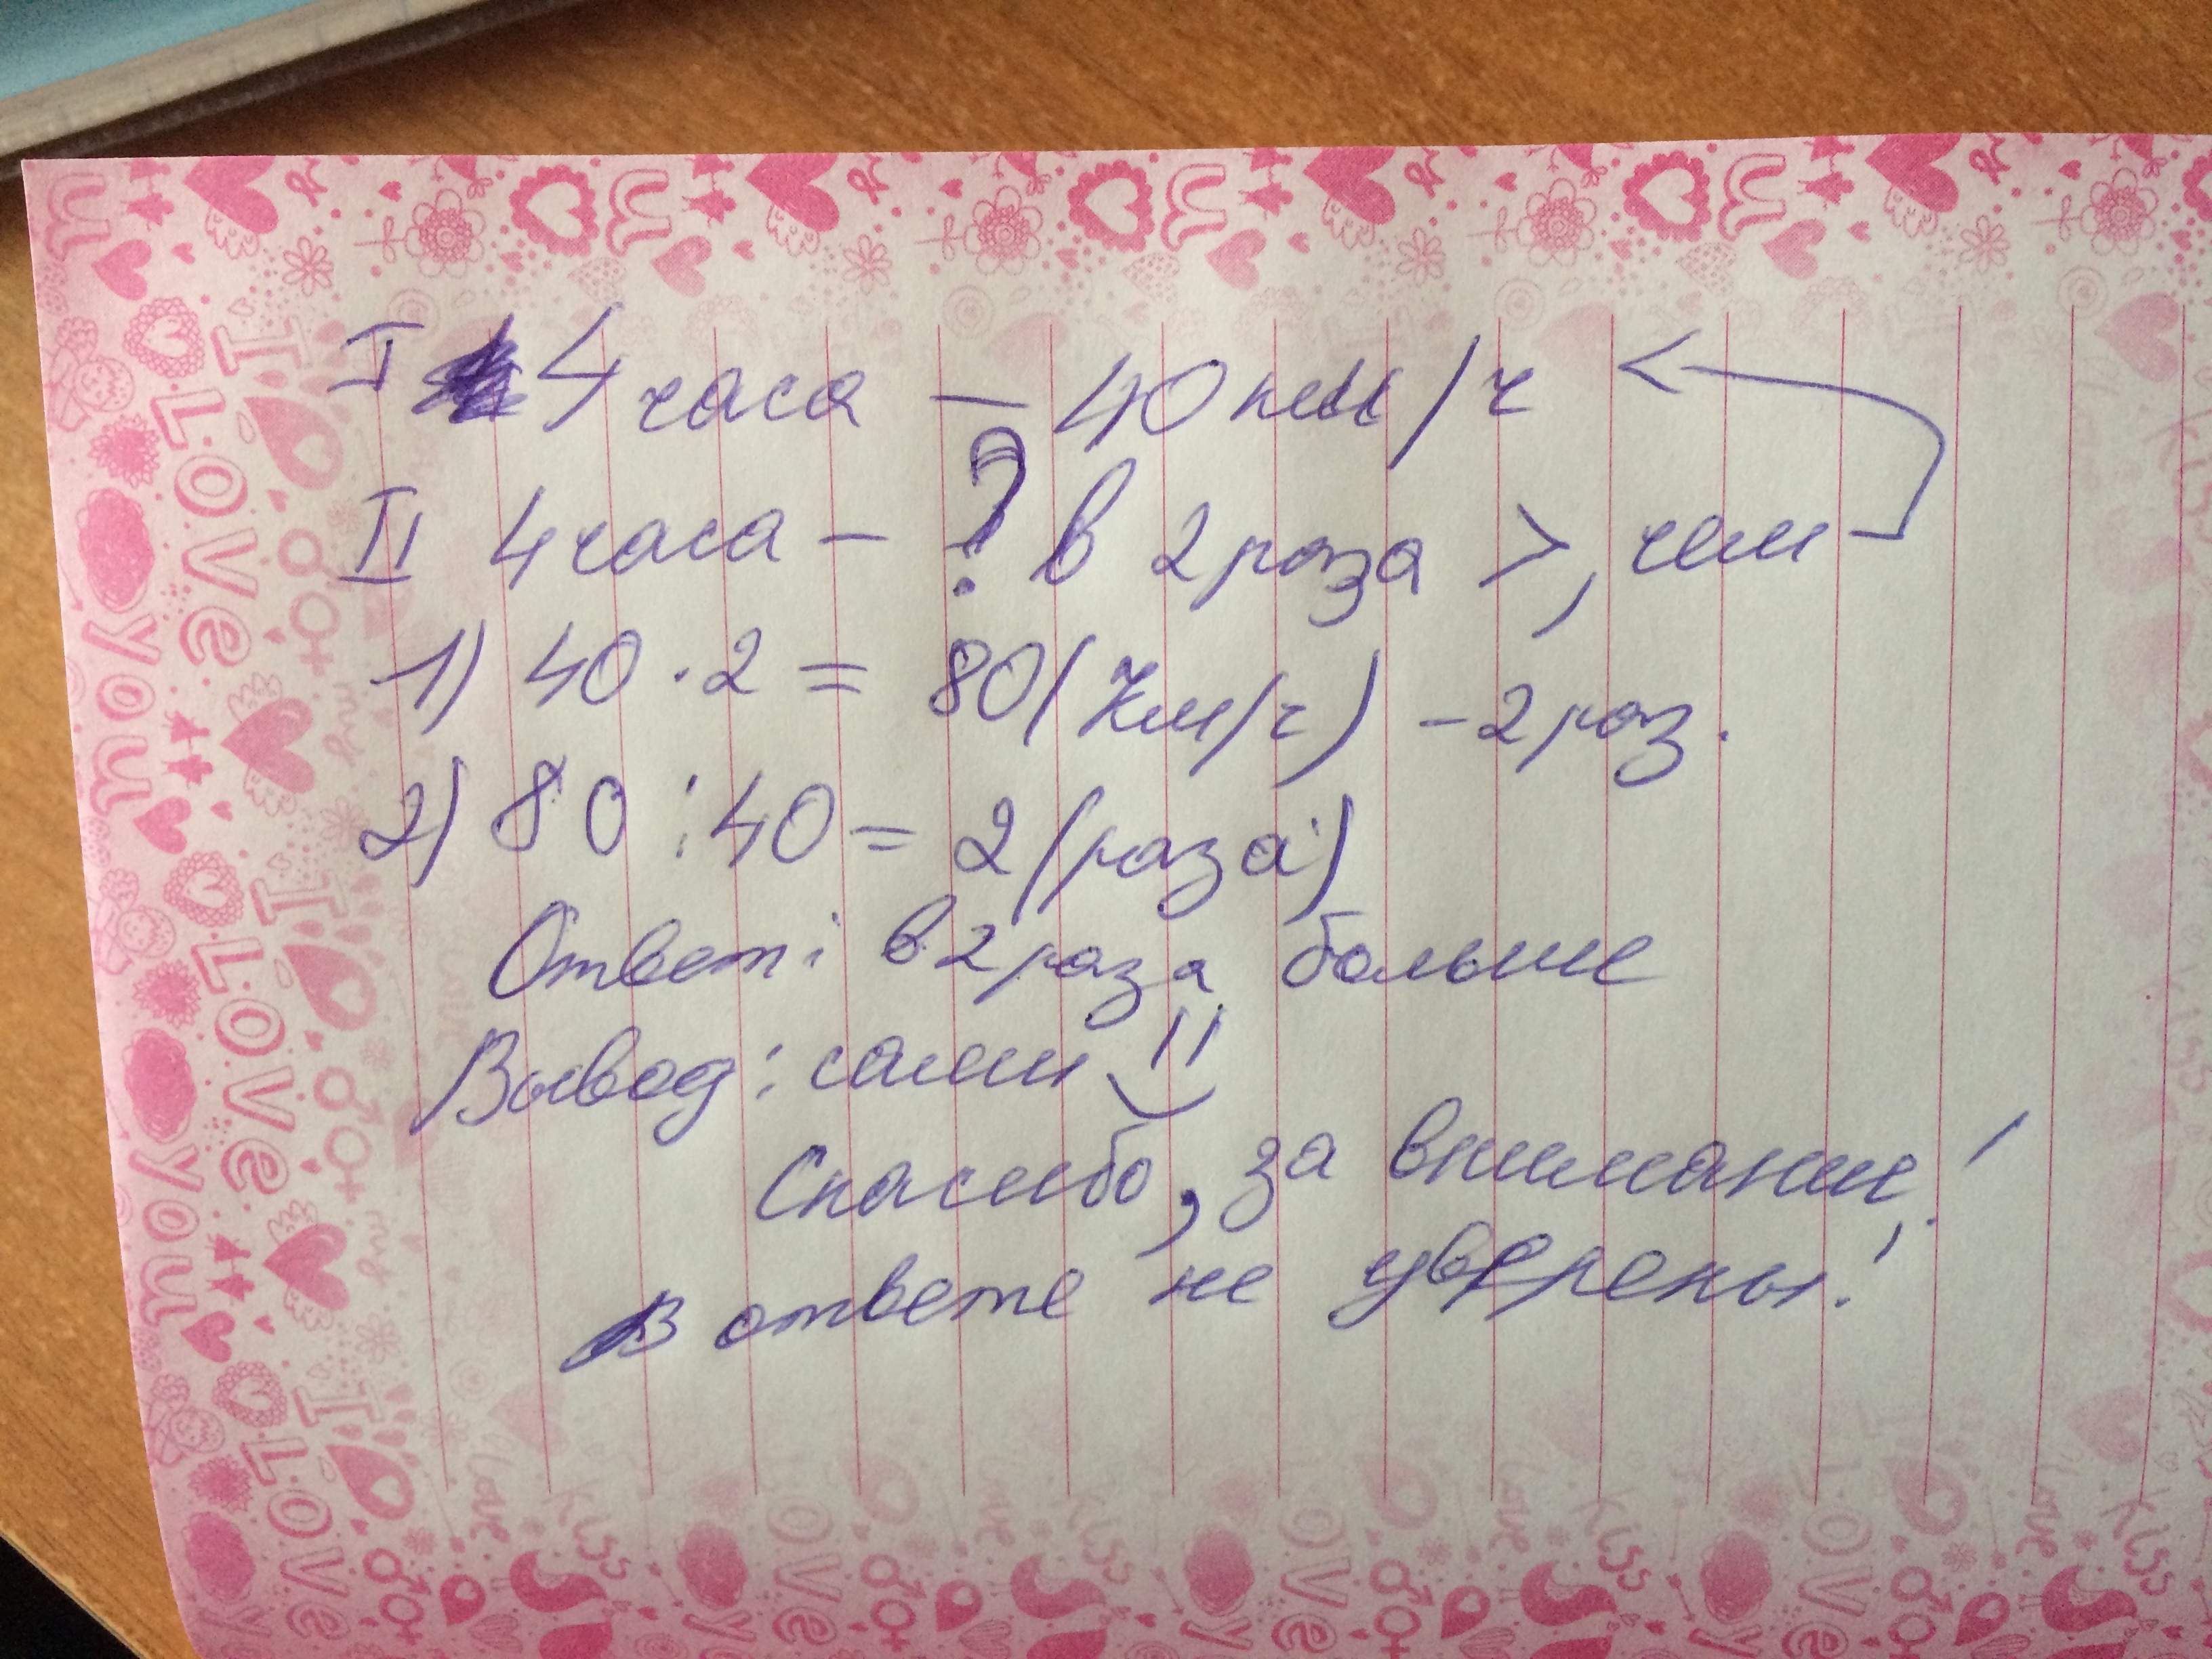 I 4 часа — 40 км/ч
II 4 часа — ? в 2 раза >, чем
1) 40 · 2 = 80 (км/ч) - 2 раз.
2) 80 : 40 = 2 (раза)
Ответ: в 2 раза больше
Вывод: сами
Спасибо, за внимание!
В ответе не уверены!
I LOVE YOU
I LOVE YOU
LOVE